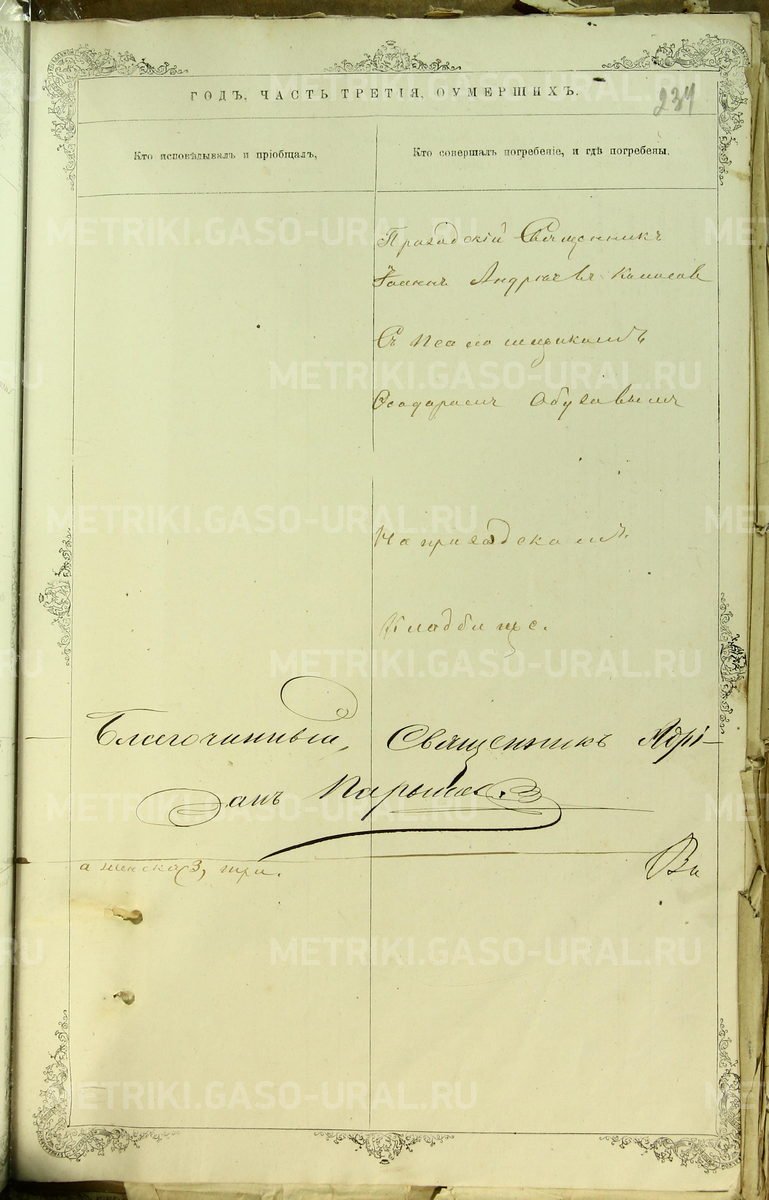 237
ГОДЪ, ЧАСТЬ ТРЕТІЯ, ОУМЕРШИХЪ.
Кто исповѣдывалъ и пріобщалъ,
Кто совершалъ погребеніе, и гдѣ погребены.
Приходскій Священникъ
Іоаннъ Андреевъ
Съ Псаломщикомъ
Феодоромъ Обуховымъ
На приходскомъ
Кладбище.
Благочинный, Священникъ Адрі-
анъ
а женска 3, три.
METRIKI.GASO-URAL.RU